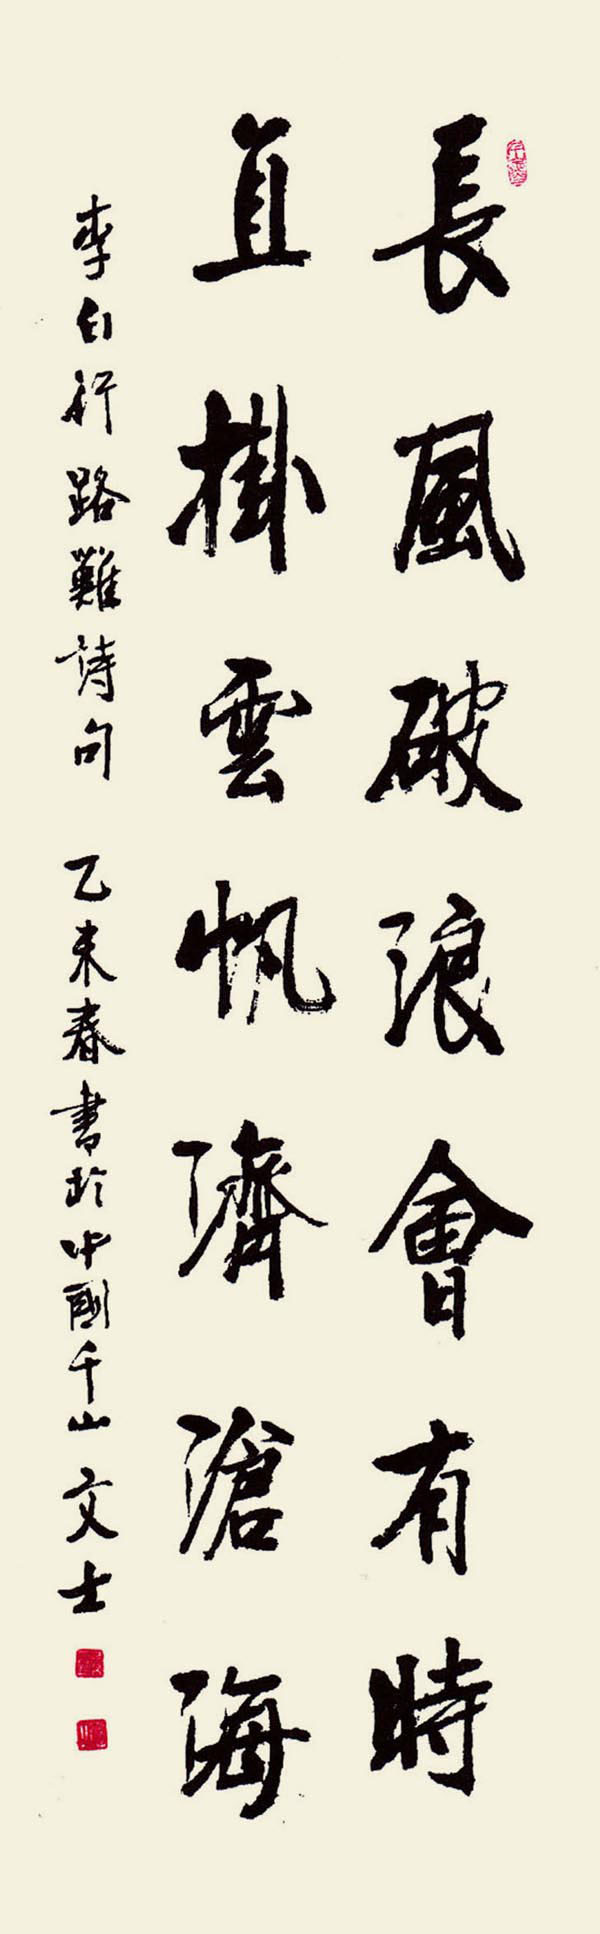 長風破浪會有時
直掛雲帆濟滄海
李白行路難詩句 乙未春書於中國千山 文士